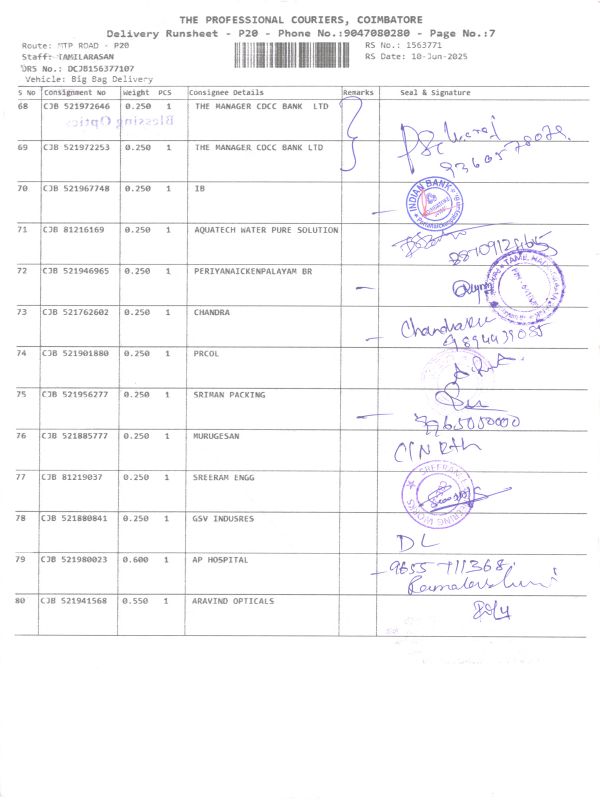 THE PROFESSIONAL COURIERS, COIMBATORE
Delivery Runsheet - P20 - Phone No.:9047080280 - Page No.:7
Route: MTP ROAD - P20 RS No.: 1563771
Staff: TAMILARASAN RS Date: 10-Jun-2025
DRS No.: DCJB156377107
Vehicle: Big Bag Delivery
S No Consignment No Weight PCS Consignee Details Remarks Seal & Signature
68 CJB 521972646 0.250 1 THE MANAGER CDCC BANK LTD
Blessing Optics
69 CJB 521972253 0.250 1 THE MANAGER CDCC BANK LTD
70 CJB 521967748 0.250 1 IB
INDIAN BANK
71 CJB 81216169 0.250 1 AQUATECH WATER PURE SOLUTION
72 CJB 521946965 0.250 1 PERIYANAICKENPALAYAM BR
73 CJB 521762602 0.250 1 CHANDRA
9894439085
74 CJB 521901880 0.250 1 PRCOL
75 CJB 521956277 0.250 1 SRIMAN PACKING
76 CJB 521885777 0.250 1 MURUGESAN
77 CJB 81219037 0.250 1 SREERAM ENGG
78 CJB 521880841 0.250 1 GSV INDUSRES
DL
79 CJB 521980023 0.600 1 AP HOSPITAL
9655711368
80 CJB 521941568 0.550 1 ARAVIND OPTICALS